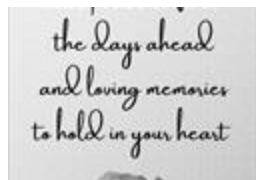 the days ahead
and loving memories
to hold in your heart